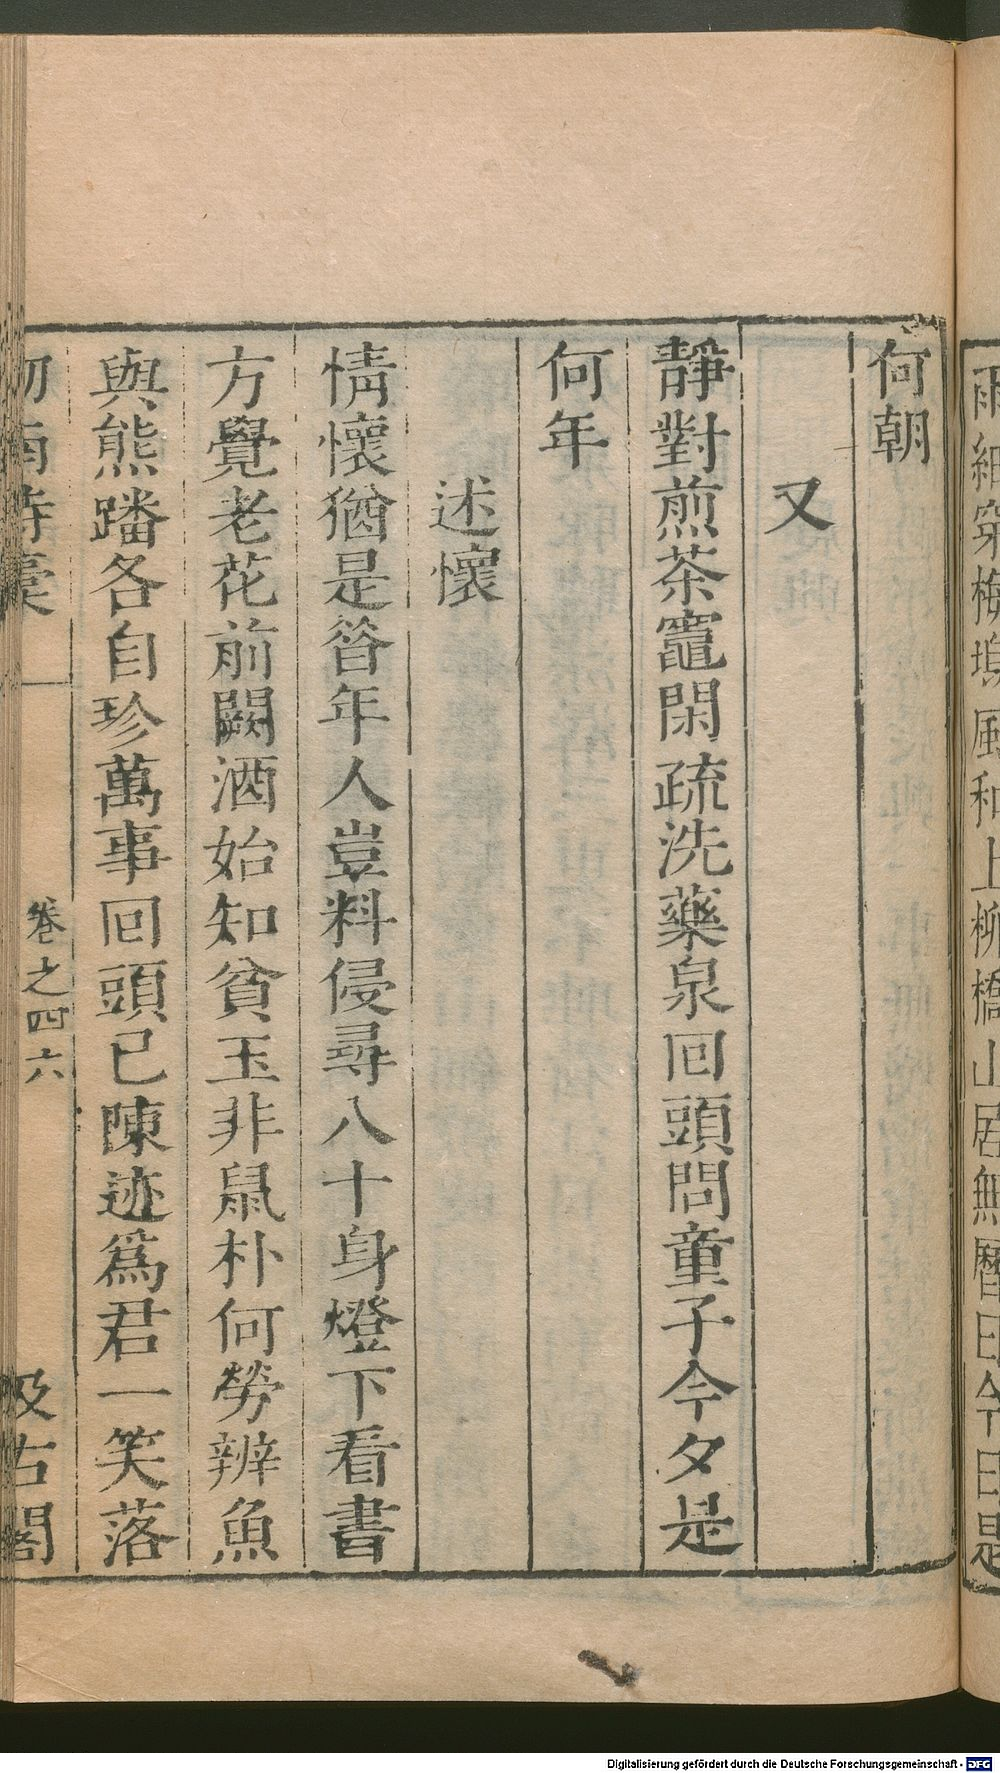 雨細穿梅塢風和上柳橋山居無曆日今日是
何朝
又
靜對煎茶竈閑疏洗藥泉回頭問童子今夕是
何年
述懷
情懷猶是昝年人豈料侵尋八十身燈下看書
方覺老花前闕酒始知貧玉非鼠朴何勞辨魚
與熊蹯各自珍萬事回頭已陳迹爲君一笑落
卷之四 六
汲古閣
Digitalisierung gefördert durch die Deutsche Forschungsgemeinschaft - DFG